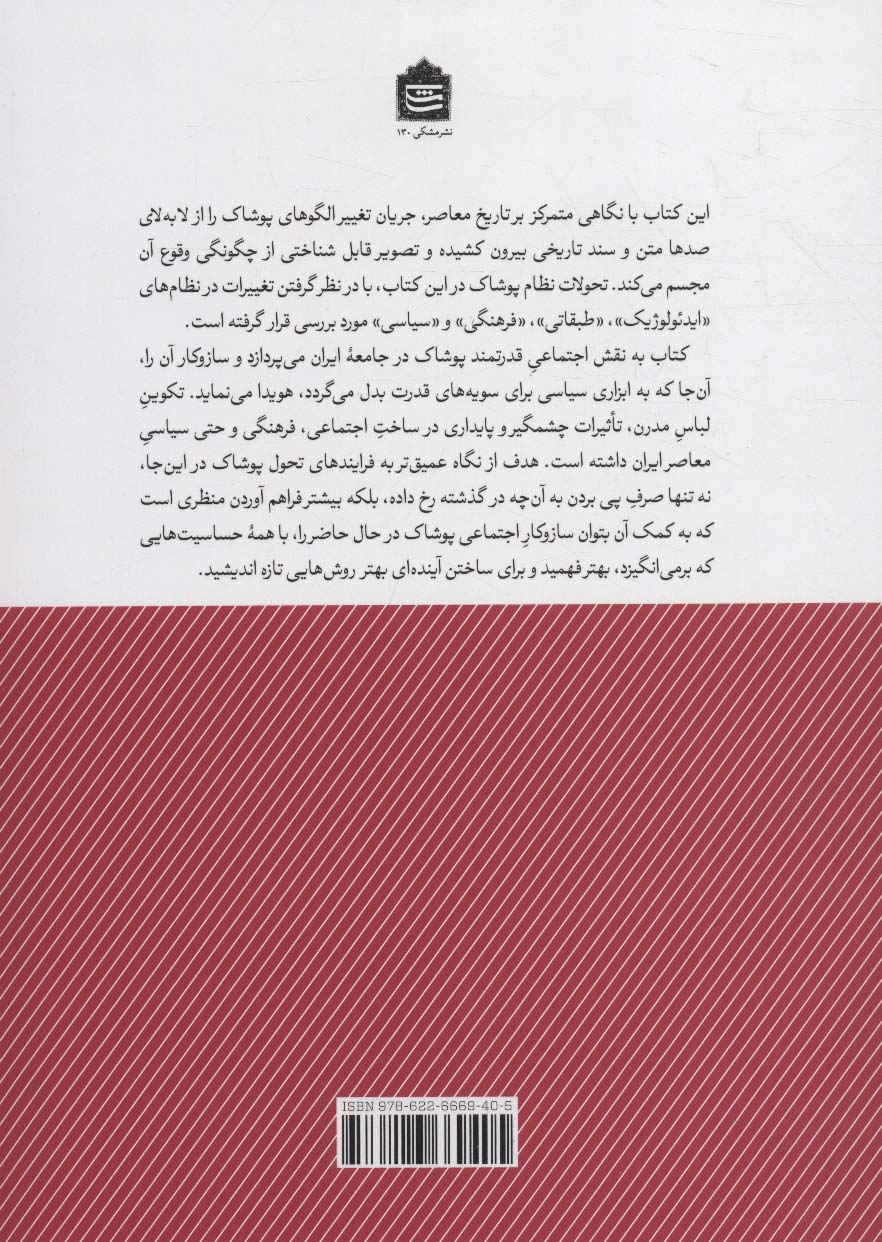 نشرمشکی ۱۳۰
این کتاب با نگاهی متمرکز بر تاریخ معاصر، جریان تغییر الگوهای پوشاک را از لابه‌لای
صدها متن و سند تاریخی بیرون کشیده و تصویر قابل شناختی از چگونگی وقوع آن
مجسم می‌کند. تحولات نظام پوشاک در این کتاب، با در نظر گرفتن تغییرات در نظام‌های
«ایدئولوژیک»، «طبقاتی»، «فرهنگی» و «سیاسی» مورد بررسی قرار گرفته است.
کتاب به نقش اجتماعیِ قدرتمند پوشاک در جامعهٔ ایران می‌پردازد و سازوکار آن را،
آن‌جا که به ابزاری سیاسی برای سویه‌های قدرت بدل می‌گردد، هویدا می‌نماید. تکوینِ
لباسِ مدرن، تأثیرات چشمگیر و پایداری در ساختِ اجتماعی، فرهنگی و حتی سیاسیِ
معاصر ایران داشته است. هدف از نگاه عمیق‌تر به فرایندهای تحول پوشاک در این‌جا،
نه تنها صرفِ پی بردن به آن‌چه در گذشته رخ داده، بلکه بیشتر فراهم آوردن منظری است
که به کمک آن بتوان سازوکارِ اجتماعی پوشاک در حال حاضر را، با همهٔ حساسیت‌هایی
که برمی‌انگیزد، بهتر فهمید و برای ساختن آینده‌ای بهتر روش‌هایی تازه اندیشید.
ISBN 978-622-6669-40-5